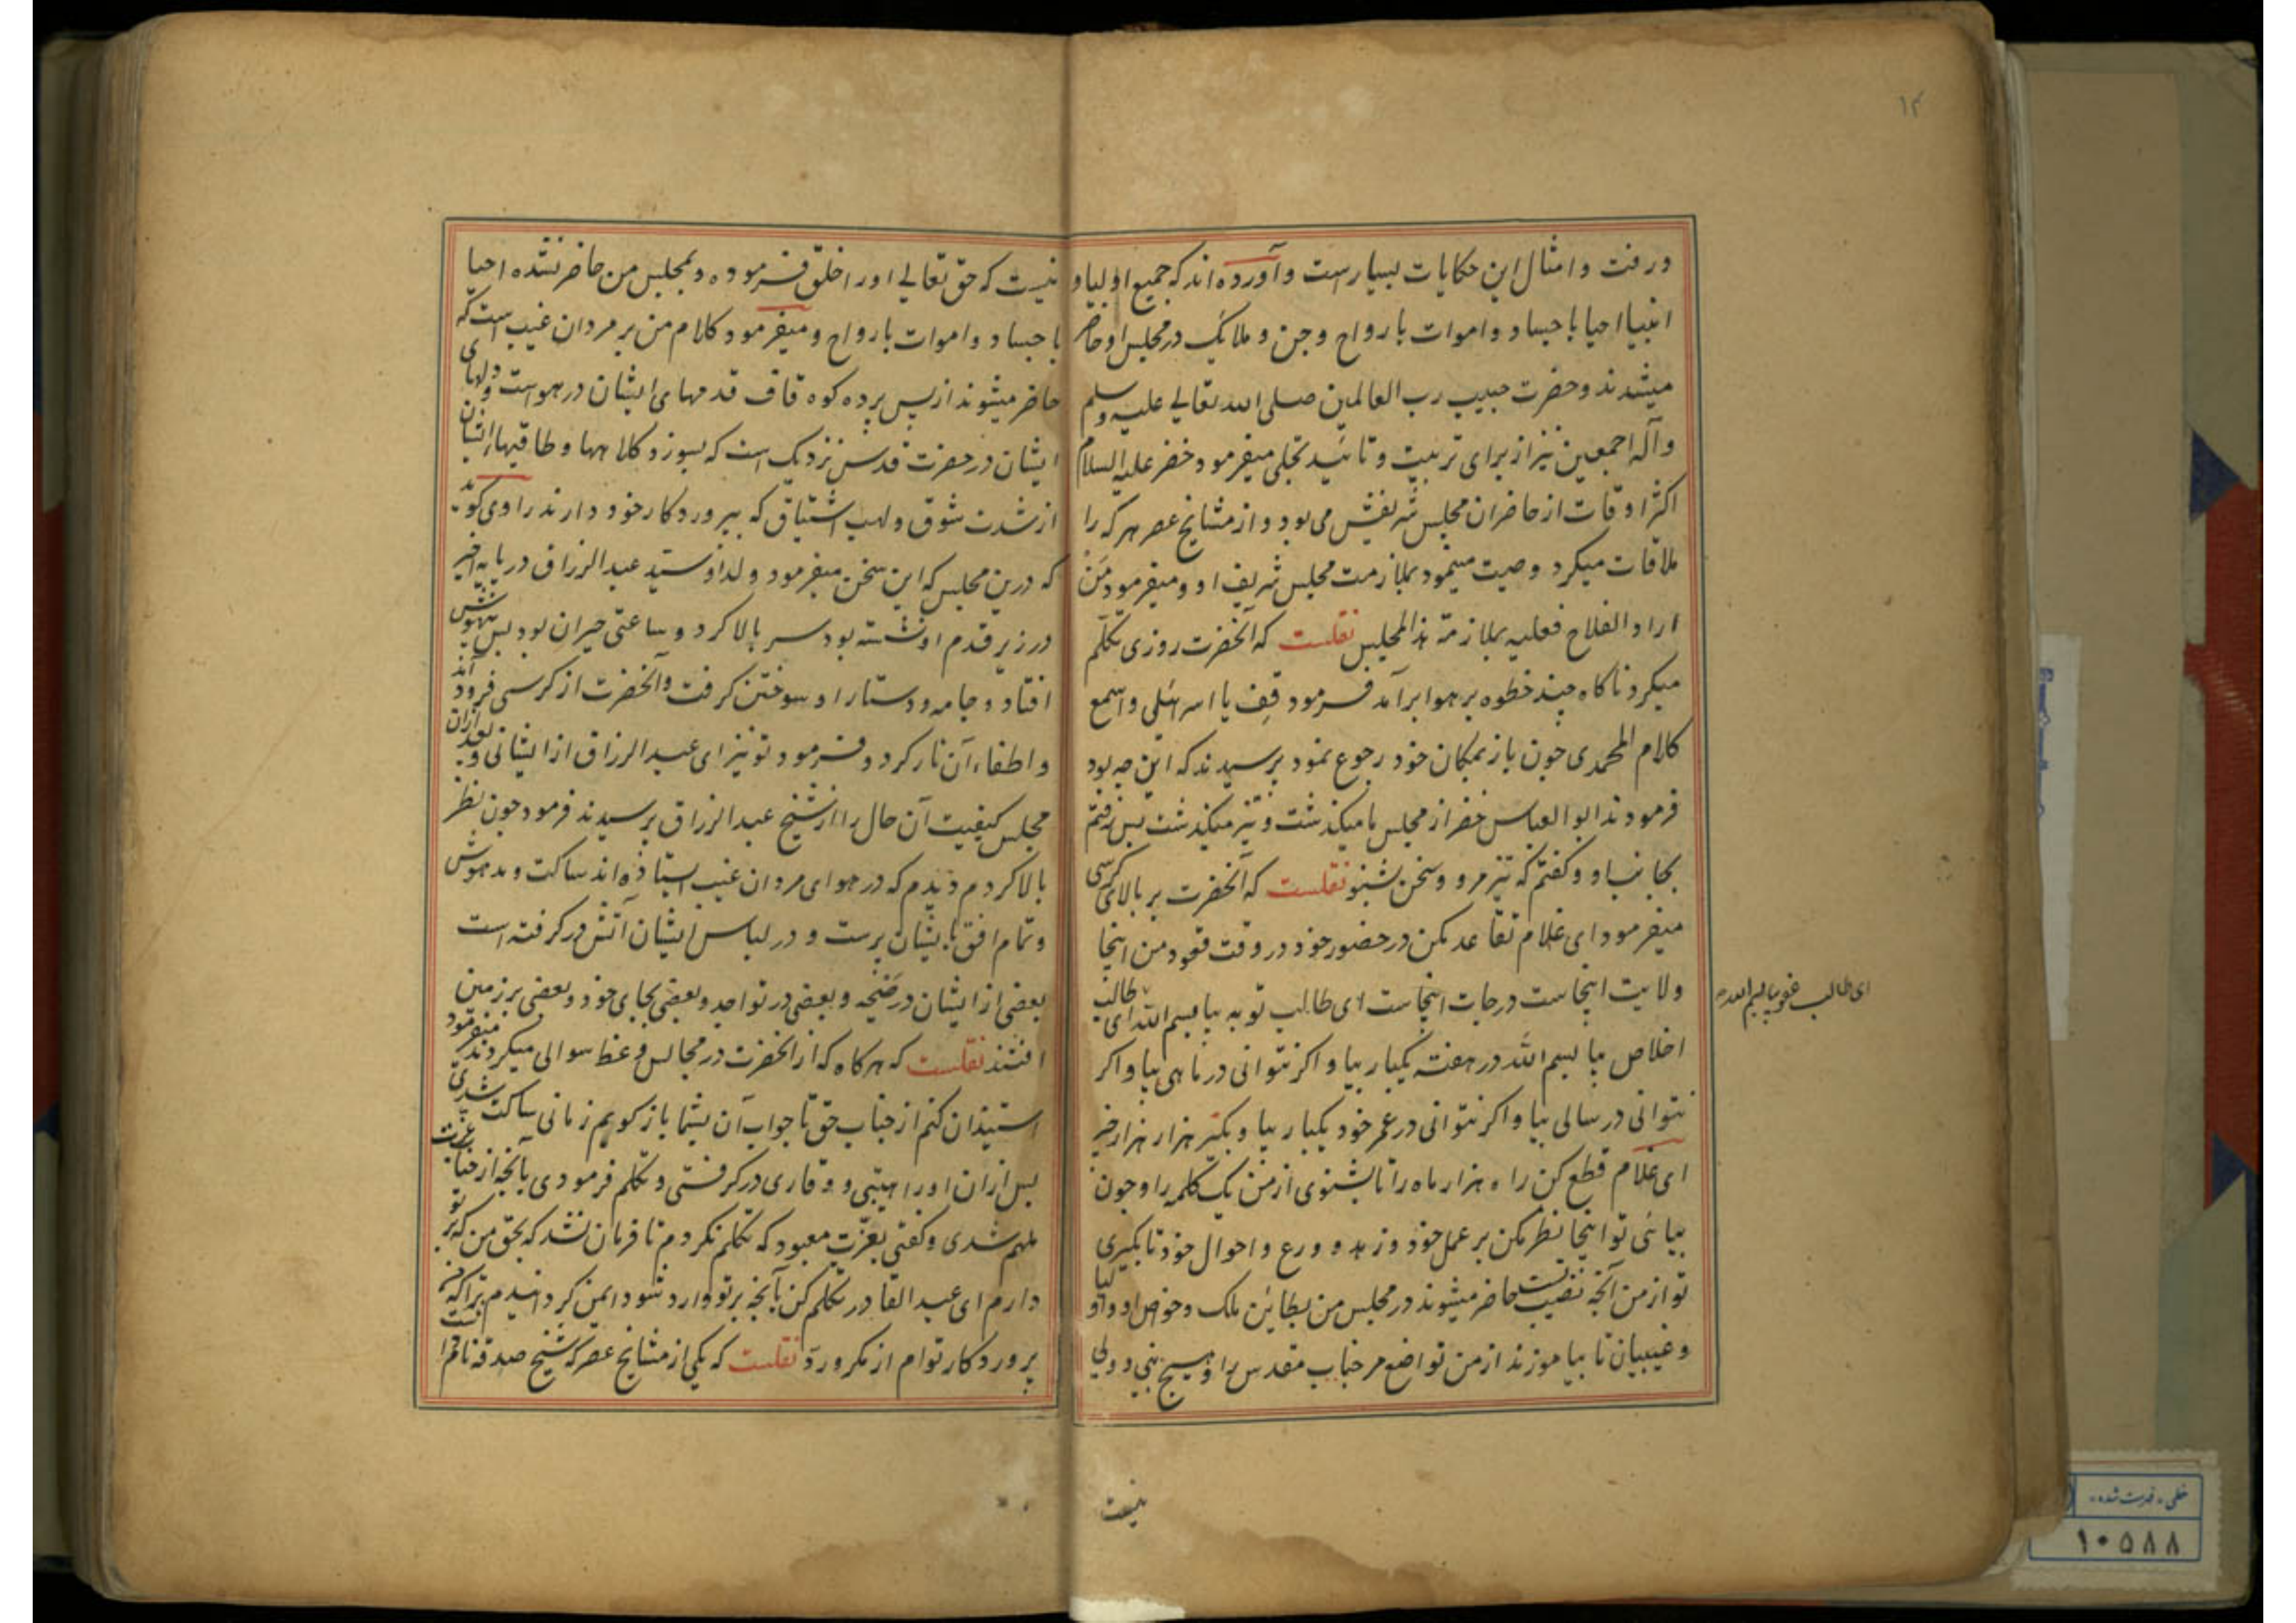 ۱۴
در رفت و امثال این حکایات بسیار است و آورده اند که جمیع اولیا و
انبیا احیا باجساد و اموات بارواح و جن و ملایک در مجلس او حاضر
میشدند و حضرت حبیب رب العالمین صلی الله تعالی علیه وسلم
و آله اجمعین نیز از برای تربیت و تائید تجلی میفرمود و خضر علیه السلام
اکثر اوقات از حاضران مجلس شریفش می بود و از مشایخ عصر هر که را
ملاقات میکرد وصیت مینمود بملازمت مجلس شریف او و میفرمود مَن
اراد الفلاح فعلیه بملازمة هذا المجلس نقلست که آنحضرت روزی تکلّم
میکرد ناکاه چند خطوه بر هوا برآمد فرمود قِف یا اسرائیلی و اسمع
کلام المحمدی چون باز بمکان خود رجوع نمود پرسیدند که این چه بود
فرمودند ابو العباس خضر از مجلس ما میکذشت و تیز میکذشت پس رفتم
بجانب او و کفتم که تیز مرو و سخن بشنو نقلست که آنحضرت بر بالای کرسی
میفرمود ای غلام تقاعد مکن در حضور خود در وقت قعود من اینجا
ولایت اینجاست درجات اینجاست ای طالب توبه بیا بسم الله ای طالب
ای طالب عفو بیا بسم الله
اخلاص بیا بسم الله در هفته یکبار بیا و اکر نتوانی در ماهی بیا و اکر
نتوانی در سالی بیا و اکر نتوانی در عمر خود یکبار بیا و بکیر هزار هزار چیز
ای غلام قطع کن راه هزار ماه را تا بشنوی از من یک کلمه را و چون
بیائی تو اینجا نظر مکن بر عمل خود و زهد و ورع و احوال خود تا بکیری
تو از من آنچه نصیب تست حاضر میشوند در مجلس من بطاین ملک و خواص او و اولیا
و غیبیان تا بیاموزند از من تواضع مر جناب مقدس را و هیچ نبی و ولی
نیست
نیست که حق تعالی او را خلق فرموده و بمجلس من حاضر نشده احیا
باجساد و اموات بارواح و میفرمود کلام من بر مردان غیب است که
حاضر میشوند از پس پرده کوه قاف قدمهای ایشان در هواست و دلهای
ایشان در حضرت قدس نزدیک است که بسوزد کلاهها و طاقیهای ایشان
از شدت شوق و لهب اشتیاق که بپروردکار خود دارند راوی کوید
که درین مجلس که این سخن میفرمود ولد او سید عبد الرزاق در پایه اخیر
در زیر قدم او نشسته بود سر بالا کرد و ساعتی حیران بود پس بیهوش
افتاد و جامه و دستار او سوختن کرفت و آنحضرت از کرسی فرود آمد
و اطفاء آن نار کرد و فرمود تو نیز ای عبد الرزاق از ایشانی و بعد ازان
مجلس کیفیت آن حال را از شیخ عبد الرزاق پرسیدند فرمود چون نظر
بالا کردم دیدم که در هوای مردان غیب استاده اند ساکت و مدهوش
و تمام افق بایشان پرست و در لباس ایشان آتش در کرفته است
بعضی از ایشان در صیحه و بعضی در تواجد و بعضی بجای خود و بعضی بر زمین
افتند نقلست که هر کاه که از آنحضرت در مجالس وعظ سوالی میکردند میفرمود
استیذان کنم از جناب حق تا جواب آن بشما باز کویم زمانی ساکت شدی
پس ازان او را هیبتی و وقاری در کرفتی و تکلم فرمودی بآنچه از جناب عزت
ملهم شدی و کفتی بعزّت معبود که تکلم نکردم تا فرمان نشد که بحق من که بر تو
دارم ای عبد القادر تکلم کن بآنچه بر تو وارد شود ایمن کردانیدم ترا که
پروردکار توام از مکر و رد نقلست که یکی از مشایخ عصر که شیخ صدقه نام
خطی - فهرست شده
۱۰۵۸۸